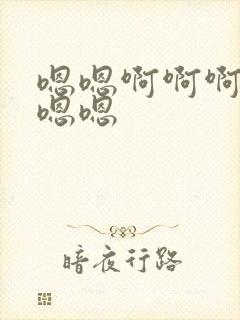 嗯嗯啊啊啊
嗯嗯
暗夜行路